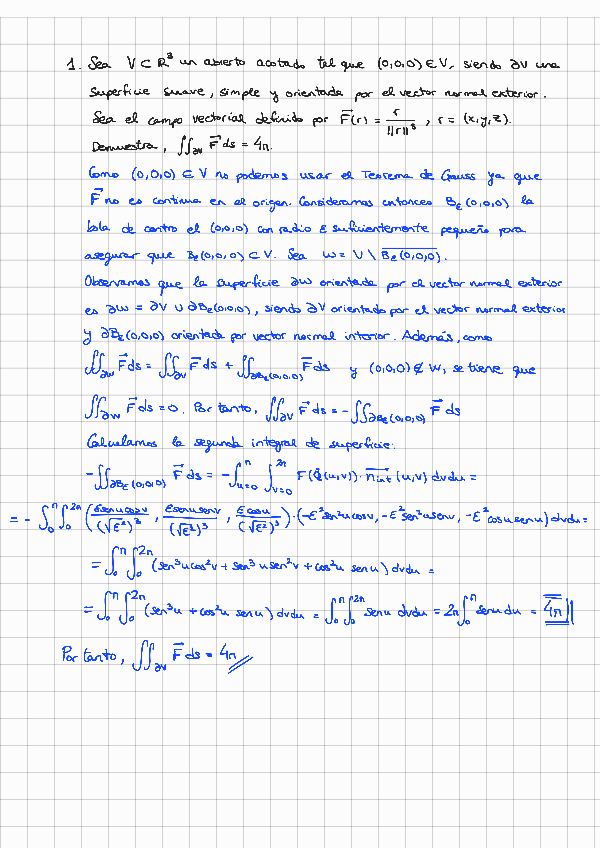 1. Sea V ⊂ R³ un abierto acotado tal que (0,0,0) ∈ V, siendo ∂V una
superficie suave, simple y orientada por el vector normal exterior.
Sea el campo vectorial definido por F⃗(r) = r/||r||³, r = (x,y,z).
Demuestra, ∬_∂V F⃗ ds = 4π.
Como (0,0,0) ∈ V no podemos usar el Teorema de Gauss ya que
F⃗ no es continua en el origen. Consideramos entonces B_ε(0,0,0) la
bola de centro el (0,0,0) con radio ε suficientemente pequeño para
asegurar que B_ε(0,0,0) ⊂ V. Sea W = V \ \overline{B_ε(0,0,0)}.
Observamos que la superficie ∂W orientada por el vector normal exterior
es ∂W = ∂V ∪ ∂B_ε(0,0,0), siendo ∂V orientado por el vector normal exterior
y ∂B_ε(0,0,0) orientada por vector normal interior. Además, como
∬_∂W F⃗ ds = ∬_∂V F⃗ ds + ∬_∂B_ε(0,0,0) F⃗ ds y (0,0,0) ∉ W, se tiene que
∬_∂W F⃗ ds = 0. Por tanto, ∬_∂V F⃗ ds = - ∬_∂B_ε(0,0,0) F⃗ ds
Calculamos la segunda integral de superficie:
- ∬_∂B_ε(0,0,0) F⃗ ds = - ∫_{u=0}^{π} ∫_{v=0}^{2π} F(Φ(u,v)) · n⃗_int (u,v) dv du =
= - ∫_0^π ∫_0^{2π} (εsenu cosv/(√ε²)³, εsenu senv/(√ε²)³, εcosu/(√ε²)³) · (-ε²sen²u cosv, -ε²sen²u senv, -ε²cosu senu) dv du =
= ∫_0^π ∫_0^{2π} (sen³u cos²v + sen³u sen²v + cos²u senu) dv du =
= ∫_0^π ∫_0^{2π} (sen³u + cos²u senu) dv du = ∫_0^π ∫_0^{2π} senu dv du = 2π ∫_0^π senu du = 4π
Por tanto, ∬_∂V F⃗ ds = 4π